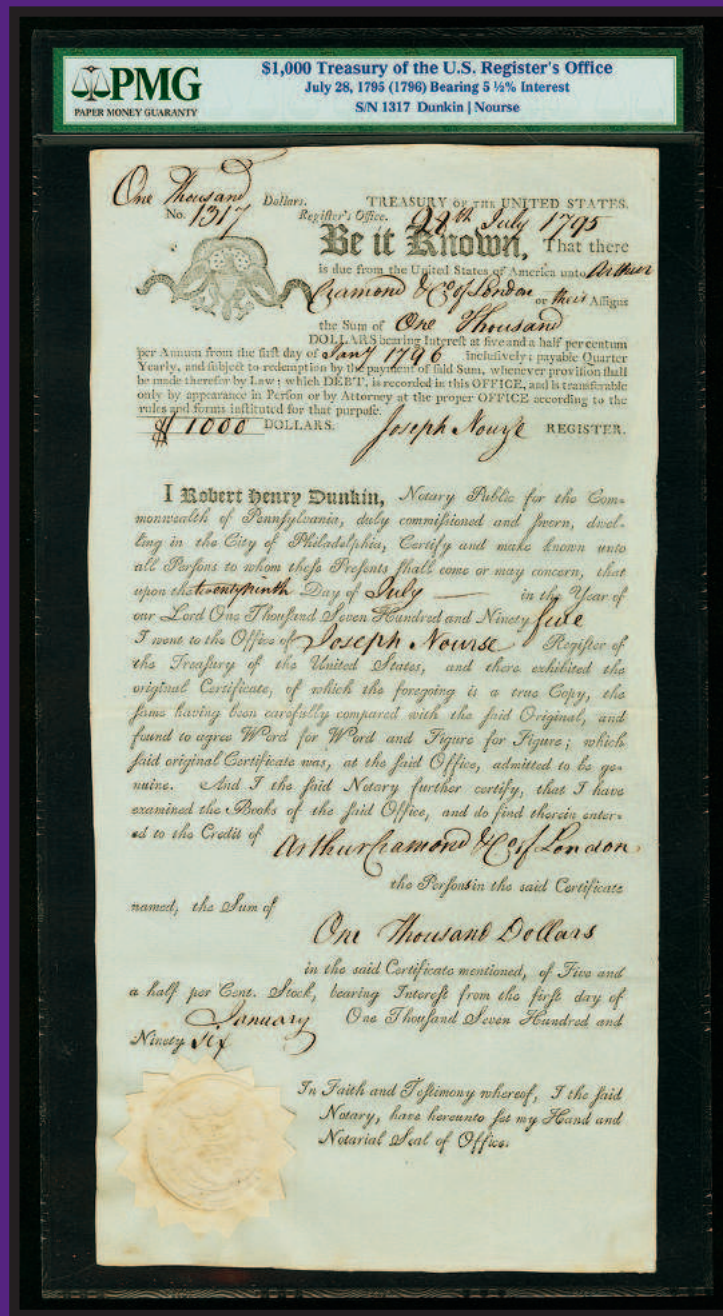 PMG
PAPER MONEY GUARANTY
$1,000 Treasury of the U.S. Register's Office
July 28, 1795 (1796) Bearing 5 ½% Interest
S/N 1317 Dunkin | Nourse
One Thousand Dollars. TREASURY OF THE UNITED STATES.
No. 1317 Regiſter's Office. 28th July 1795
Be it Known, That there
is due from the United States of America unto Arthur
Cramond & Co of London or their Aſſigns
the Sum of One Thousand
DOLLARS bearing Intereſt at five and a half per centum
per Annum from the firſt day of Jany 1796 incluſively; payable Quarter
Yearly, and ſubject to redemption by the payment of ſaid Sum, whenever proviſion ſhall
be made therefor by Law; which DEBT, is recorded in this OFFICE, and is transferable
only by appearance in Perſon or by Attorney at the proper OFFICE according to the
rules and forms inſtituted for that purpoſe.
$ 1000 DOLLARS. Joseph Nourse REGISTER.
I Robert Henry Dunkin, Notary Public for the Com-
monwealth of Pennſylvania, duly commiſſioned and ſworn, dwel-
ling in the City of Philadelphia, Certify and make known unto
all Perſons to whom theſe Preſents ſhall come or may concern, that
upon the twenty ninth Day of July in the Year of
our Lord One Thouſand Seven Hundred and Ninety five
I went to the Office of Joseph Nourse Regiſter of
the Treaſury of the United States, and there exhibited the
original Certificate, of which the foregoing is a true Copy, the
ſame having been carefully compared with the ſaid Original, and
found to agree Word for Word and Figure for Figure; which
ſaid original Certificate was, at the ſaid Office, admitted to be ge-
nuine. And I the ſaid Notary further certify, that I have
examined the Books of the ſaid Office, and do find therein enter-
ed to the Credit of Arthur Cramond & Co of London
the Perſons in the said Certificate
named, the Sum of
One Thousand Dollars
in the said Certificate mentioned, of Five and
a half per Cent. Stock, bearing Intereſt from the firſt day of
January One Thouſand Seven Hundred and
Ninety Six
In Faith and Teſtimony whereof, I the ſaid
Notary, have hereunto ſet my Hand and
Notarial Seal of Office.